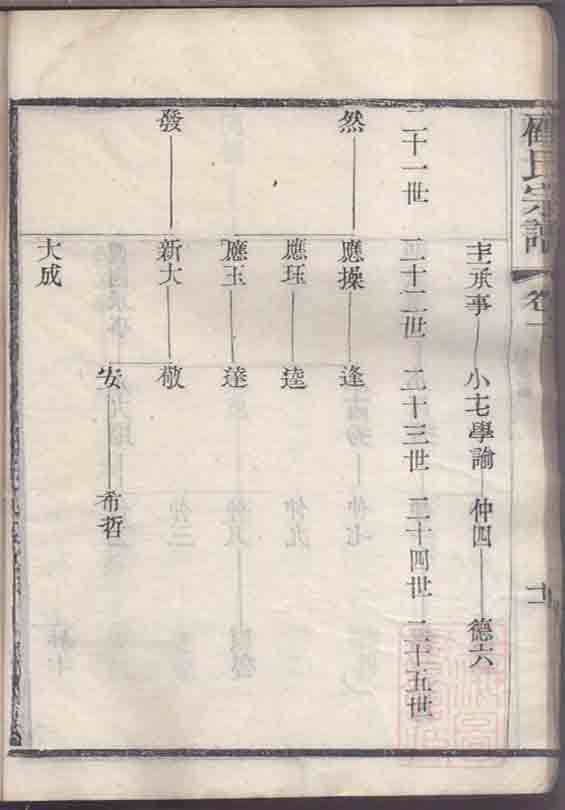 氏宗譜 卷一
主承事 小七學諭 仲四 德六
二十一世 二十二世 二十三世 二十四世 二十五世
然 應操 逢
應珏 逵
應玉 達
發 新大 敬
安 希哲
大成